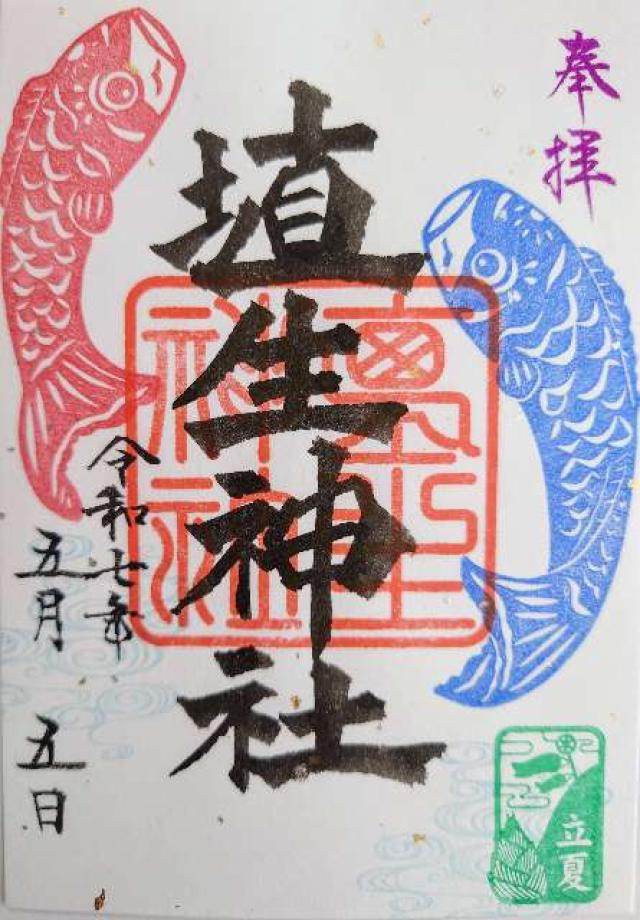 奉拝
埴生神社
令和七年
五月五日
立夏